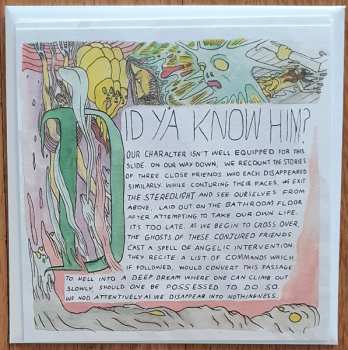 DID YA KNOW HIM?
OUR CHARACTER ISN'T WELL EQUIPPED FOR THIS
SLIDE. ON OUR WAY DOWN, WE RECOUNT THE STORIES
OF THREE CLOSE FRIENDS WHO EACH DISAPPEARED
SIMILARLY. WHILE CONJURING THEIR FACES, WE EXIT
THE STEREOLIGHT AND SEE OURSELVES FROM
ABOVE, LAID OUT ON THE BATHROOM FLOOR
AFTER ATTEMPTING TO TAKE OUR OWN LIFE.
IT'S TOO LATE. AS WE BEGIN TO CROSS OVER,
THE GHOSTS OF THESE CONJURED FRIENDS
CAST A SPELL OF ANGELIC INTERVENTION.
THEY RECITE A LIST OF COMMANDS WHICH
IF FOLLOWED, WOULD CONVERT THIS PASSAGE
TO HELL INTO A DEEP DREAM WHERE ONE CAN CLIMB OUT
SLOWLY SHOULD ONE BE POSSESSED TO DO SO.
WE NOD ATTENTIVELY AS WE DISAPPEAR INTO NOTHINGNESS.